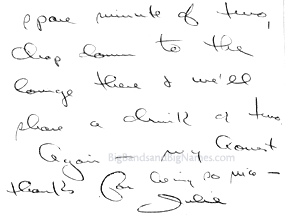 spare minute of two,
drop down to the
lounge there & we'll
share a drink or two
BigBandsandBigNames.com
Again my
thanks for being so nice –
Julie